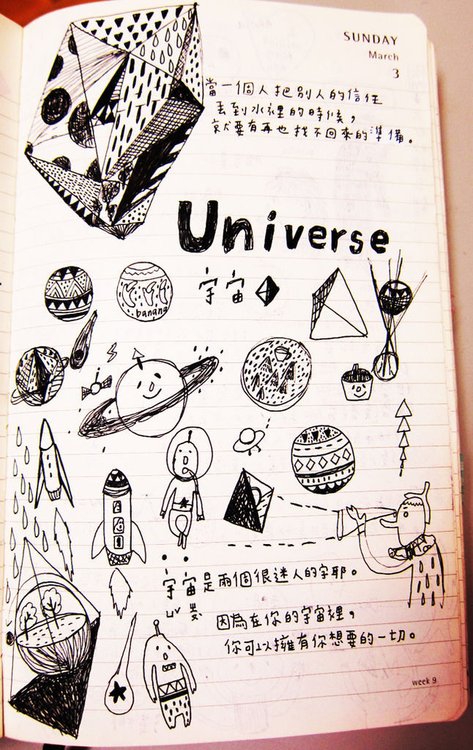 SUNDAY
March
3
當一個人把別人的信任
丟到水裡的時候，
就要有再也找不回來的準備。
Universe
宇宙
banana
宇宙是兩個很迷人的字耶。
ㄩˇ ㄓㄡˋ
因為在你的宇宙裡，
你可以擁有你想要的一切。
week 9